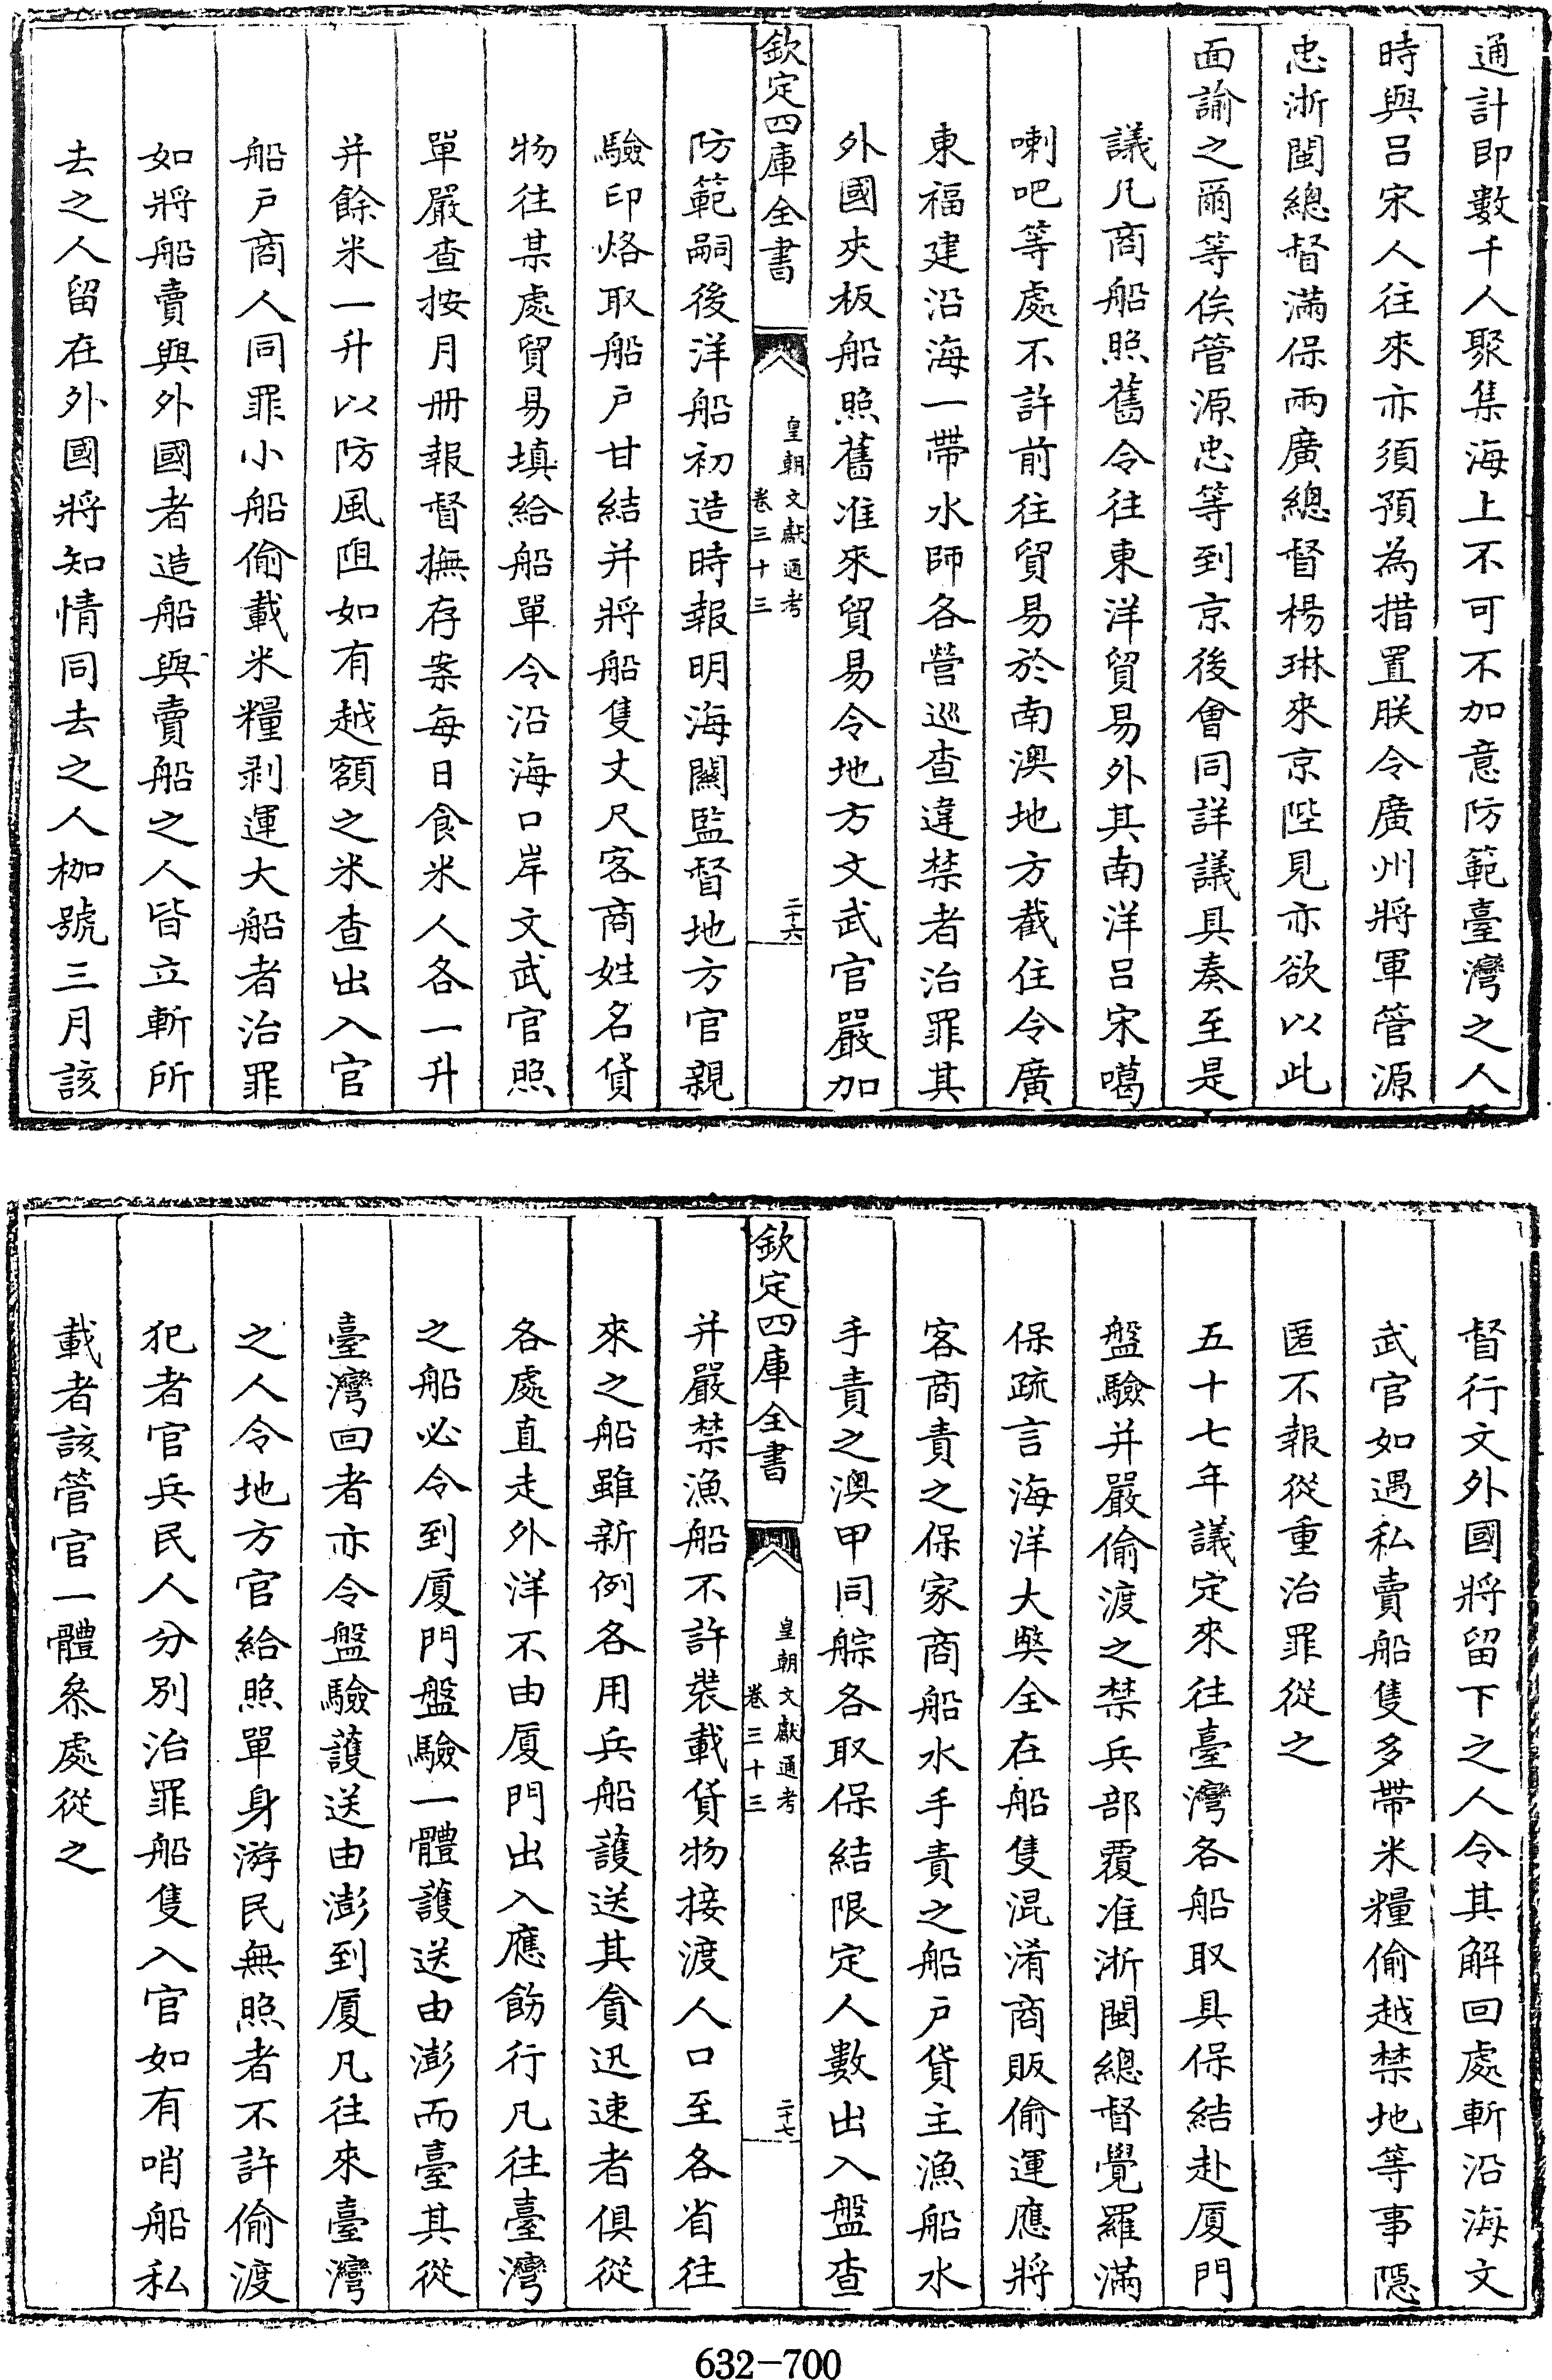 通計即數千人聚集海上不可不加意防範臺灣之人
時與吕宋人往來亦須預為措置朕令廣州將軍管源
忠浙閩總督滿保兩廣總督楊琳來京陛見亦欲以此
面諭之爾等俟管源忠等到京後會同詳議具奏至是
議凡商船照舊令往東洋貿易外其南洋吕宋噶
喇吧等處不許前往貿易於南澳地方截住令廣
東福建沿海一帶水師各營巡查違禁者治罪其
外國夾板船照舊准來貿易令地方文武官嚴加
欽定四庫全書
皇朝文獻通考
卷三十三
二十六
防範嗣後洋船初造時報明海關監督地方官親
驗印烙取船户甘結并將船隻丈尺客商姓名貨
物往某處貿易填給船單令沿海口岸文武官照
單嚴查按月冊報督撫存案每日食米人各一升
并餘米一升以防風阻如有越額之米查出入官
船户商人同罪小船偷載米糧剥運大船者治罪
如將船賣與外國者造船與賣船之人皆立斬所
去之人留在外國將知情同去之人枷號三月該
督行文外國將留下之人令其解回處斬沿海文
武官如遇私賣船隻多帶米糧偷越禁地等事隠
匿不報從重治罪從之
五十七年議定來往臺灣各船取具保結赴厦門
盤驗并嚴偷渡之禁兵部覆准浙閩總督覺羅滿
保疏言海洋大獘全在船隻混淆商販偷運應將
客商責之保家商船水手責之船户貨主漁船水
手責之澳甲同𦨴各取保結限定人數出入盤查
欽定四庫全書
皇朝文獻通考
卷三十三
二十七
并嚴禁漁船不許裝載貨物接渡人口至各省往
來之船雖新例各用兵船護送其貪迅速者俱從
各處直走外洋不由厦門出入應飭行凡往臺灣
之船必令到厦門盤驗一體護送由澎而臺其從
臺灣回者亦令盤驗護送由澎到厦凡往來臺灣
之人令地方官給照單身游民無照者不許偷渡
犯者官兵民人分別治罪船隻入官如有哨船私
載者該管官一體叅處從之
632-700